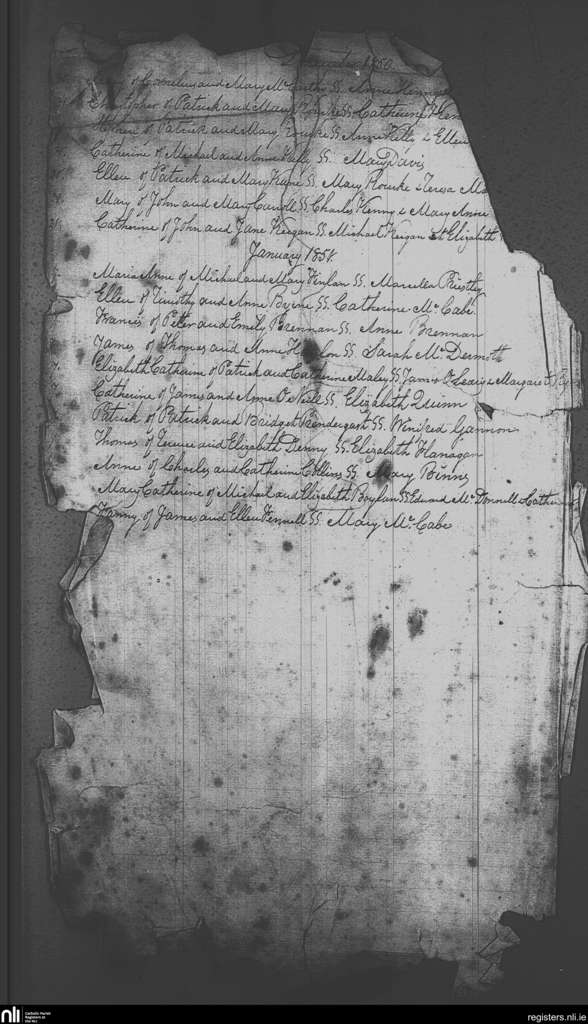 December 1850
of Cornelius and Mary McCarthy SS. Anne Kenny
Christopher of Patrick and Mary Rourke SS Catherine
of Patrick and Mary Rourke SS Anne Kelly & Ellen
Catherine of Michael and Anne SS. Mary Davis
Ellen of Patrick and Mary Kane SS. Mary Rourke & Teresa
Mary of John and Mary Carroll SS. Charles Kenny & Mary Anne
Catherine of John and Jane Keegan SS. Michael Keegan & Elizabeth
January 1851.
Maria Anne of Michael and Mary SS. Marcella
Ellen of Timothy and Anne Byrne SS. Catherine McCabe
Francis of Peter and Emily Brennan SS. Anne Brennan
James of Thomas and Anne SS. Sarah McDermott
Elizabeth Catherine of Patrick and Catherine Maley SS James O'Leary & Margaret
Catherine of James and Anne O'Neill SS. Elizabeth Quinn
Patrick of Patrick and Bridget Prendergast SS. Winifred Gannon
Thomas of and Elizabeth Denny SS. Elizabeth Flanagan
Anne of Charles and Catherine Collins SS. Mary Binns
Mary Catherine of Michael and Elizabeth Boylan SS Edward McDonnell & Catherine
Fanny of James and Ellen Fennell SS. Mary McCabe
nli
Catholic Parish
Registers at
the NLI
registers.nli.ie